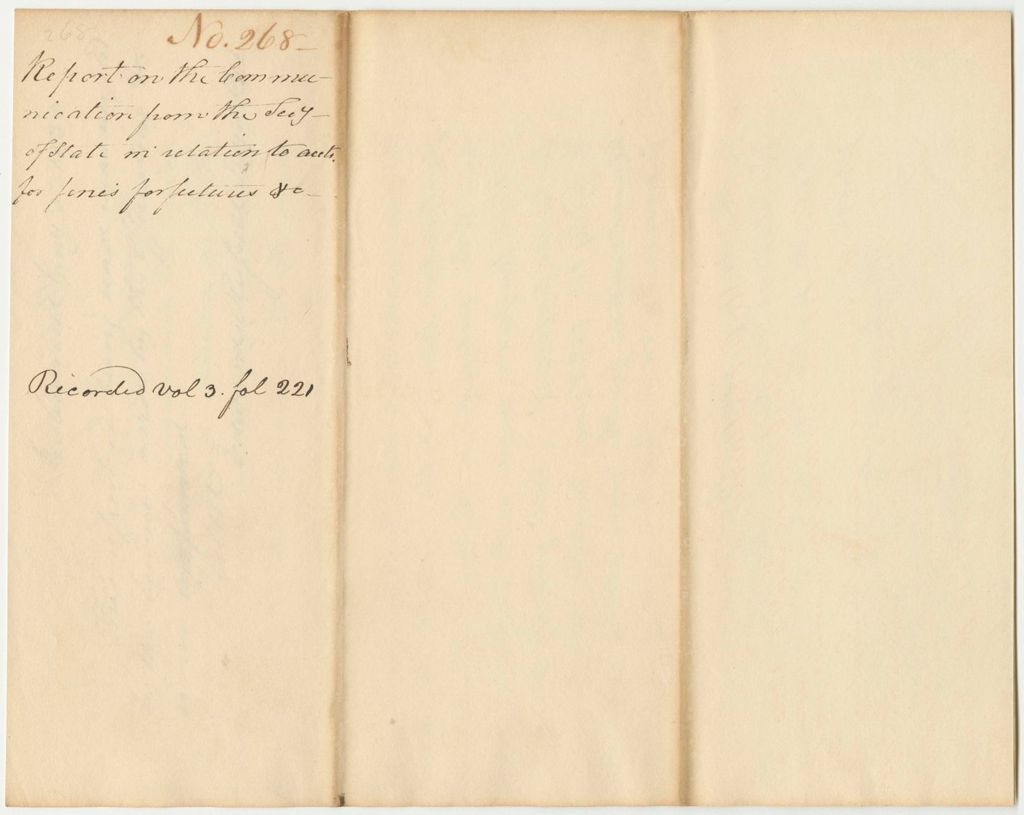 268
No. 268
Report on the Commu-
nication from the Secy
of State in relation to accts.
for fines forfeitures &c
Recorded vol 3. fol 221